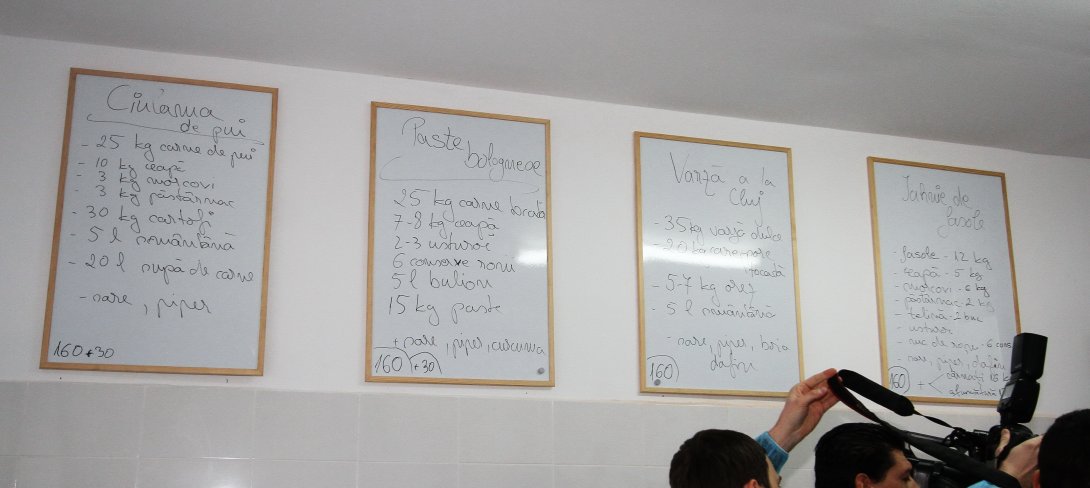 Ciulama
de pui
- 25 kg carne de pui
- 10 kg ceapă
- 3 kg morcovi
- 3 kg păstârnac
- 30 kg cartofi
- 5 l smântână
- 20 l supă de carne
- sare, piper
160 + 30
Paste
bolognese
25 kg carne tocată
7-8 kg ceapă
2-3 usturoi
6 conserve rosii
5 l bulion
15 kg paste
+ sare, piper, curcuma
160 +30
Varză a la
Cluj
- 35 kg varză dulce
- 20 kg carne
tocată
- 5-7 kg orez
- 5 l smântână
- sare, piper, boia
dafin
160
Iahnie de
fasole
- fasole - 12 kg
- ceapă - 5 kg
- morcovi - 6 kg
- păstârnac - 2 kg
- țelină - 2 buc
- usturoi
- suc de rosii - 6 cons
- sare, piper, dafin
160 + < cârnați 15 k
afumătură